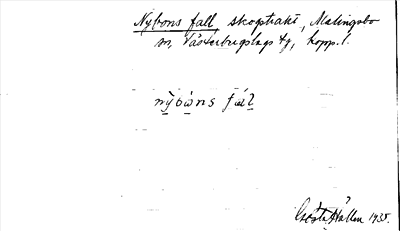 Nybons fall skogstrakt, Malingsbo
sn, Västerbergslags tg, Kopp. l.
nỳbώns fal
Gösta Hallén 1935.